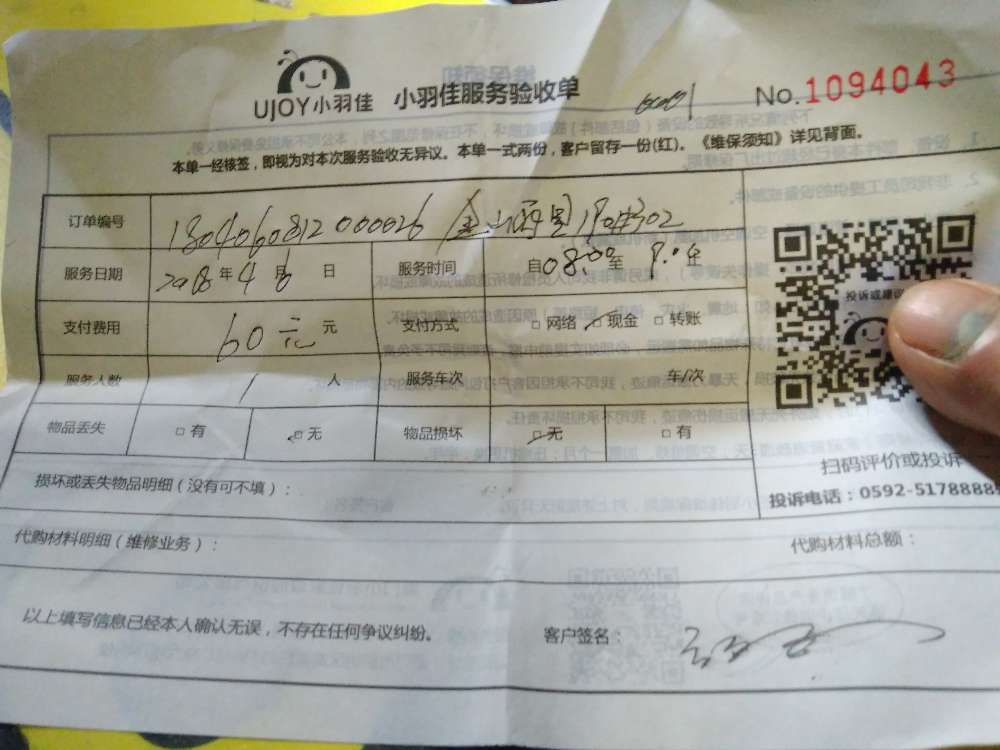 UJOY小羽佳 小羽佳服务验收单 No.1094043
本单一经核签，即视为对本次服务验收无异议。本单一式两份，客户留存一份(红)。《维保须知》详见背面。
订单编号 1804060812000026
服务日期 2018年4月6日 服务时间 自08:00至
支付费用 60元 元 支付方式 □网络 □现金 □转账
服务人数 1 人 服务车次 车/次
物品丢失 □有 □无 物品损坏 □无 □有
投诉或建议
扫码评价或投诉
投诉电话：0592-5178888
损坏或丢失物品明细（没有可不填）：
代购材料明细（维修业务）： 代购材料总额：
以上填写信息已经本人确认无误，不存在任何争议纠纷。 客户签名：